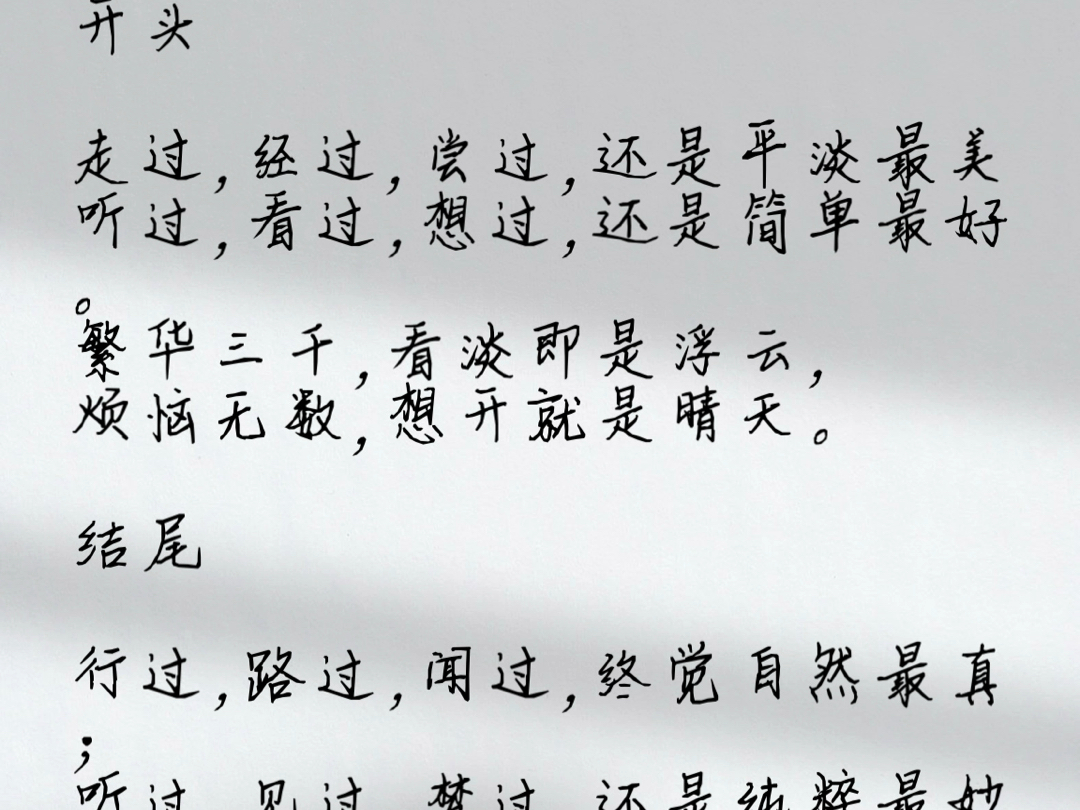 开头
走过,经过,尝过,还是平淡最美
听过,看过,想过,还是简单最好
。
繁华三千,看淡即是浮云,
烦恼无数,想开就是晴天。
结尾
行过,路过,闻过,终觉自然最真
;
听过,见过,梦过,还是纯粹最妙